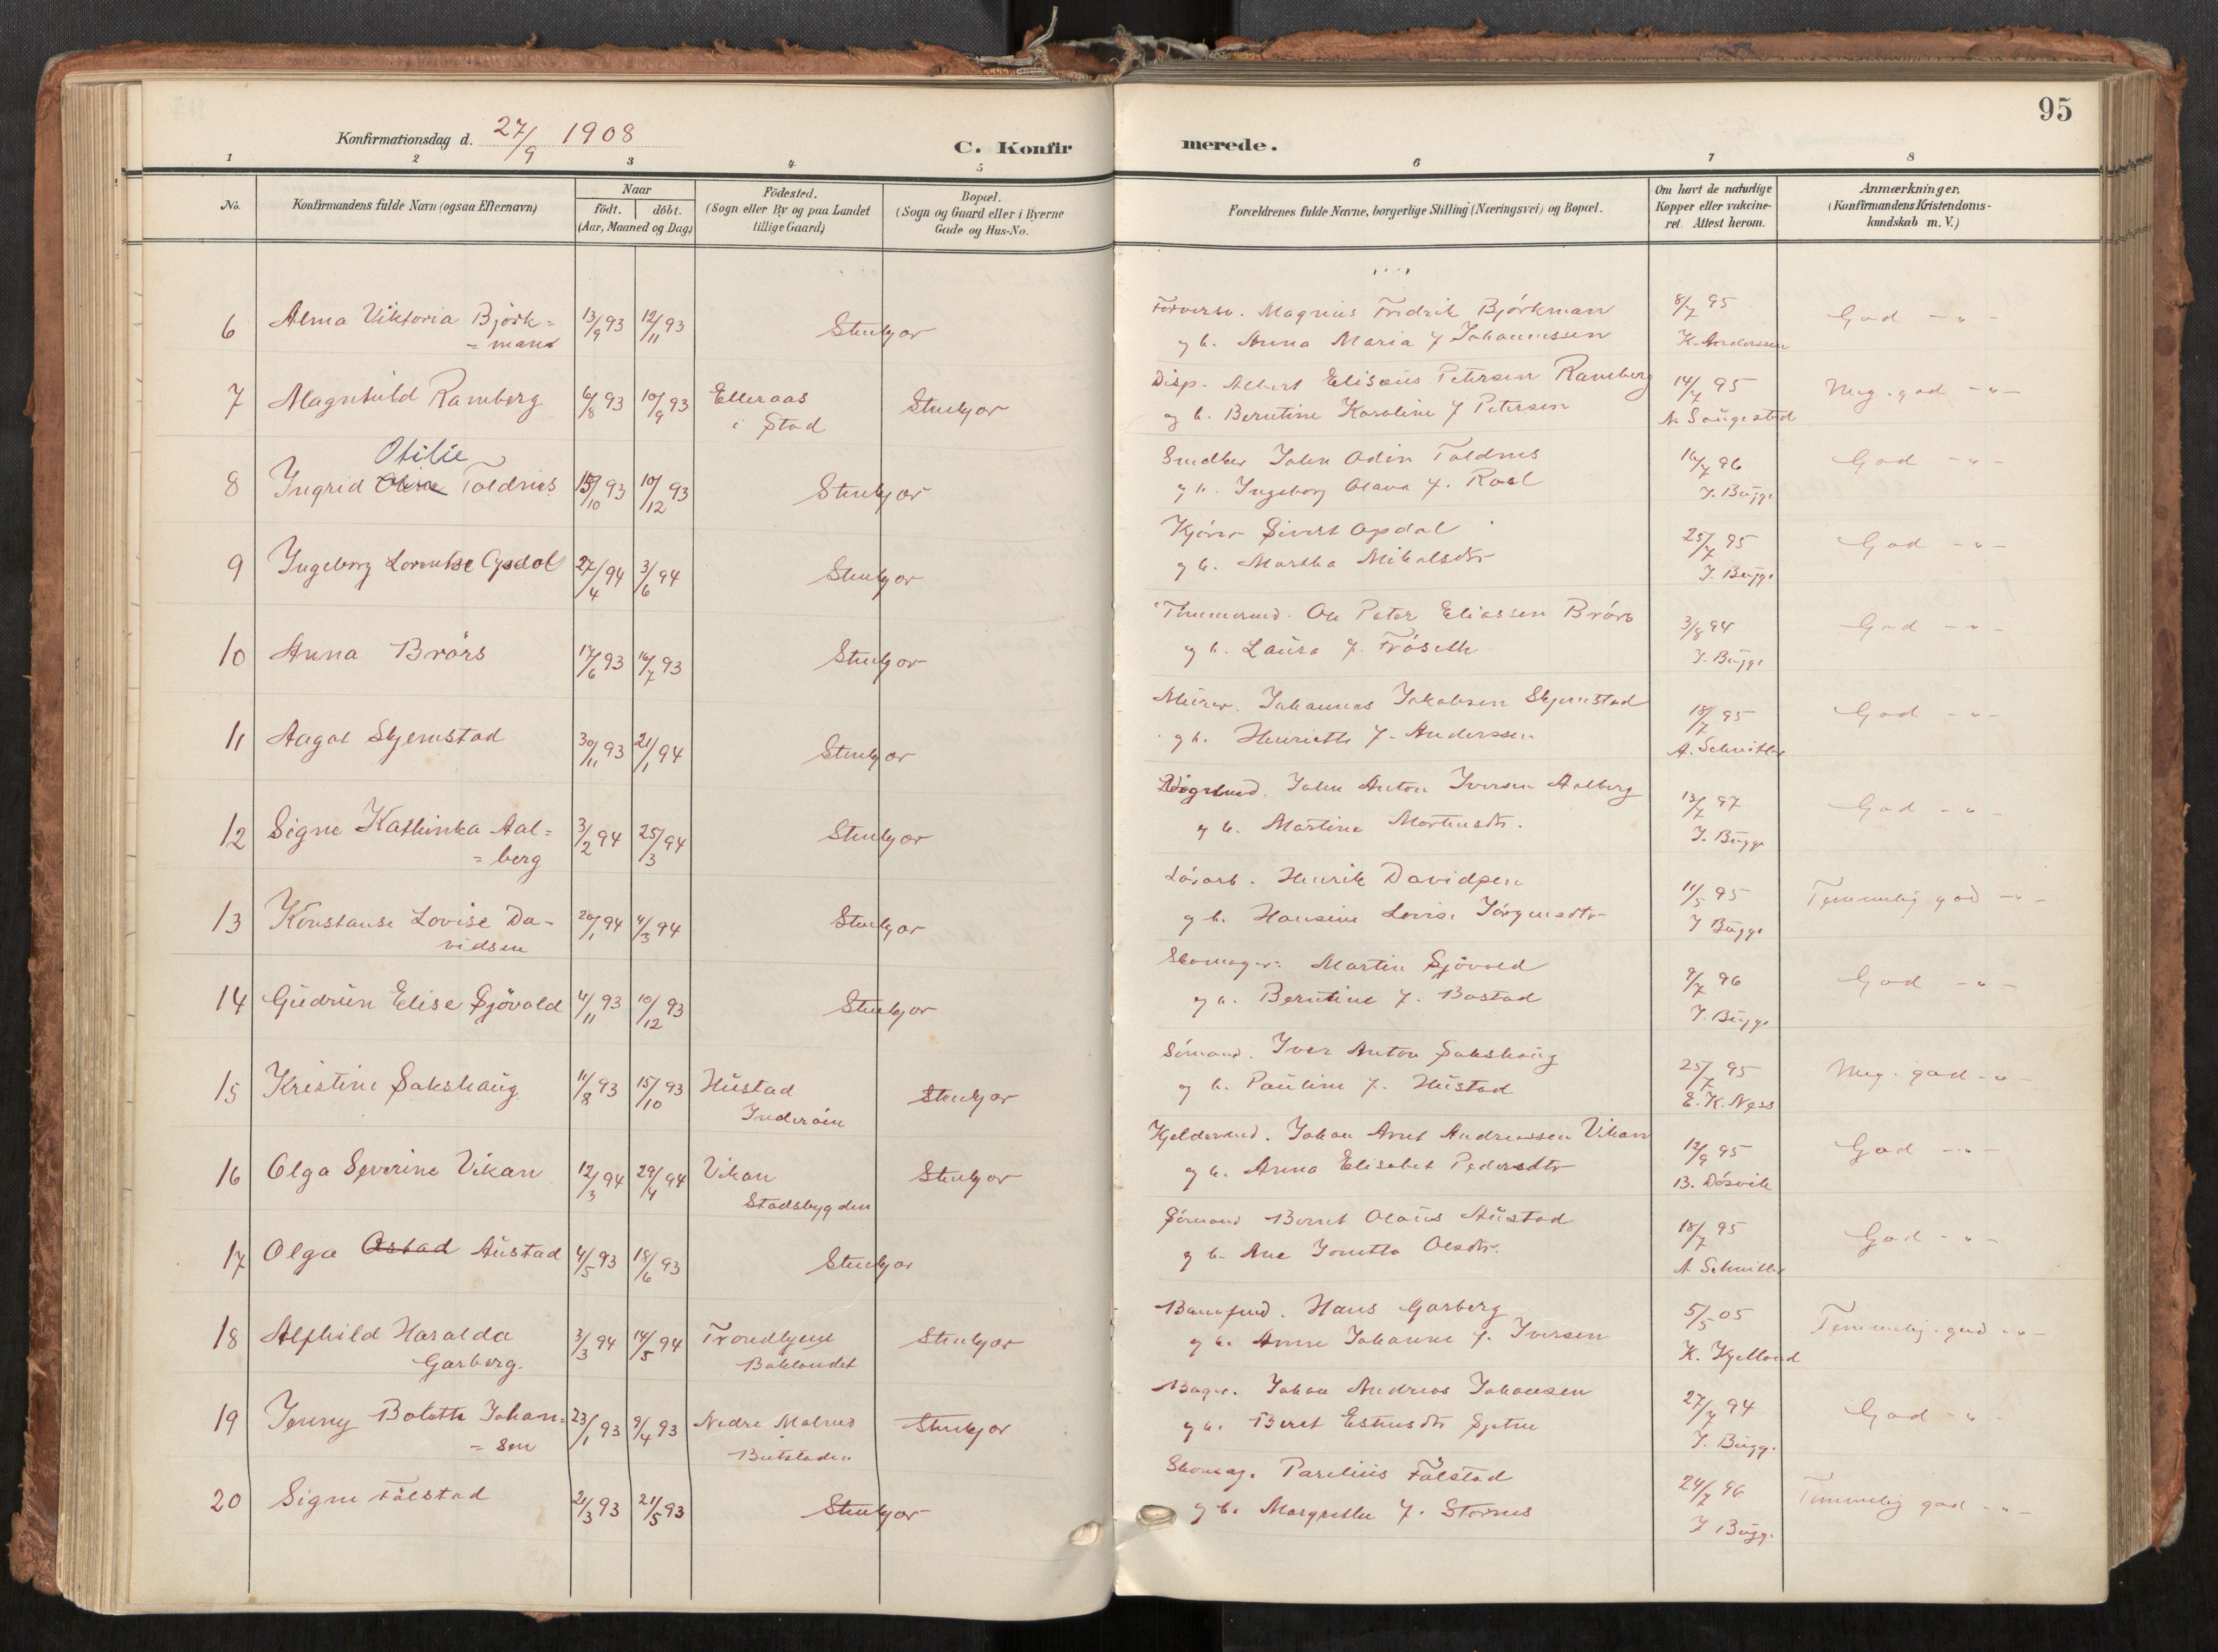 95
Konfirmationsdag d. 27/9 1908
C. Konfirmerede.
1 2 3 4 5 6 7 8
No.
Konfirmandens fulde Navn (ogsaa Efternavn)
Naar
födt. döbt.
(Aar, Maaned og Dag)
Födested.
(Sogn eller By og paa Landet
tillige Gaard)
Bopæl.
(Sogn og Gaard eller i Byerne
Gade og Hus-No.
Forældrenes fulde Navne, borgerlige Stilling (Næringsvei) og Bopæl.
Om havt de naturlige
Kopper eller vakcine-
ret. Attest herom.
Anmærkninger.
(Konfirmandens Kristendoms-
kundskab m. V.)
6 Alma Viktoria Björk= 13/9 93 12/11 93 Stenkjær Magnus Fredrik Björkman 8/7 95 God - " -
= man og h. Anna Maria f. Johannessen K. Anderssen
7 Magnhild Ramberg 6/8 93 10/9 93 Elleraas Stenkjær Disp. Albert Elisæus Petersen Ramberg 14/7 95 Meg. god - " -
i Stod og h. Berntine Karoline f Petersen N. Saugestad
Otilie
8 Ingrid Toldnes 15/10 93 10/12 93 Stenkjær John Odin Toldnes 16/7 96 God - " -
og h. Ingeborg Olava f. Roel J. Bugge
9 Ingeborg Lorentse Opdal 27/4 94 3/6 94 Stenkjær Kjörer Sivert Opdal 25/7 95 God - " -
og h. Martha Mikalsdtr J. Bugge
10 Anna Brörs 17/6 93 16/7 93 Stenkjær Tömmermd. Ole Peter Eliassen Brörs 3/8 94 God - " -
og h. Laura f. Fröseth J. Bugge
11 Aagot Skjemstad 30/11 93 21/1 94 Stenkjær Murer. Johannes Jakobsen Skjemstad 18/7 95 God - " -
og h. Henriette f. Anderssen A. Schnitler
12 Signe Kathinka Aal= 3/2 94 25/3 94 Stenkjær John Anton Iversen Aalberg 13/7 97 God - "
= berg og h. Martine Martinsdtr. J. Bugge
13 Konstanse Lovise Da- 20/1 94 4/3 94 Stenkjær Lösarb. Henrik Davidsen 11/5 95 Temmelig god - " -
vidsen og h. Hansine Lovise Jörgensdtr J Bugge
14 Gudrun Elise Sjövold 4/11 93 10/12 93 Stenkjær Skomager. Martin Sjövold 9/7 96 God - " -
og h. Berntine f. Bostad J. Bugge
15 Kristine Sakshaug 11/8 93 15/10 93 Hustad Stenkjær Sömand. Iver Anton Sakshaug 25/7 95 Meg. god - " -
Inderöen og h. Pauline f. Hustad E. K. Næss
16 Olga Severine Vikan 12/3 94 29/4 94 Vikan Stenkjær Kjeldermd. Johan Arnt Andreassen Vikan 12/9 95 God - " -
Stadsbygden og h. Anna Elisabet Pedersdtr B. Dösvik
17 Olga Astad Austad 4/5 93 18/6 93 Stenkjær Sömand Bernt Olaus Austad 18/7 95 God - " -
og h. Ane Jonetta Olsdtr. A Schnitler
18 Alfhild Haralda 3/3 94 14/5 94 Trondhjem Stenkjær Hans Garberg 5/5 05 Temmelig god - " -
Garberg. Baklandet og h. Anne Johanne f. Iversen K. Kjelland
19 Jenny Bolette Johan= 23/1 93 9/4 93 Nedre Stenkjær Bager. Johan Andreas Johansen 27/7 94 God - " -
= sen Beitstaden og h. Beret Estensdtr J. Bugge.
20 Signe Folstad 21/3 93 21/5 93 Stenkjær Skomag. Parelius Folstad 24/7 96 Temmelig god - " -
og h. Margrethe f. Stornes J Bugge.